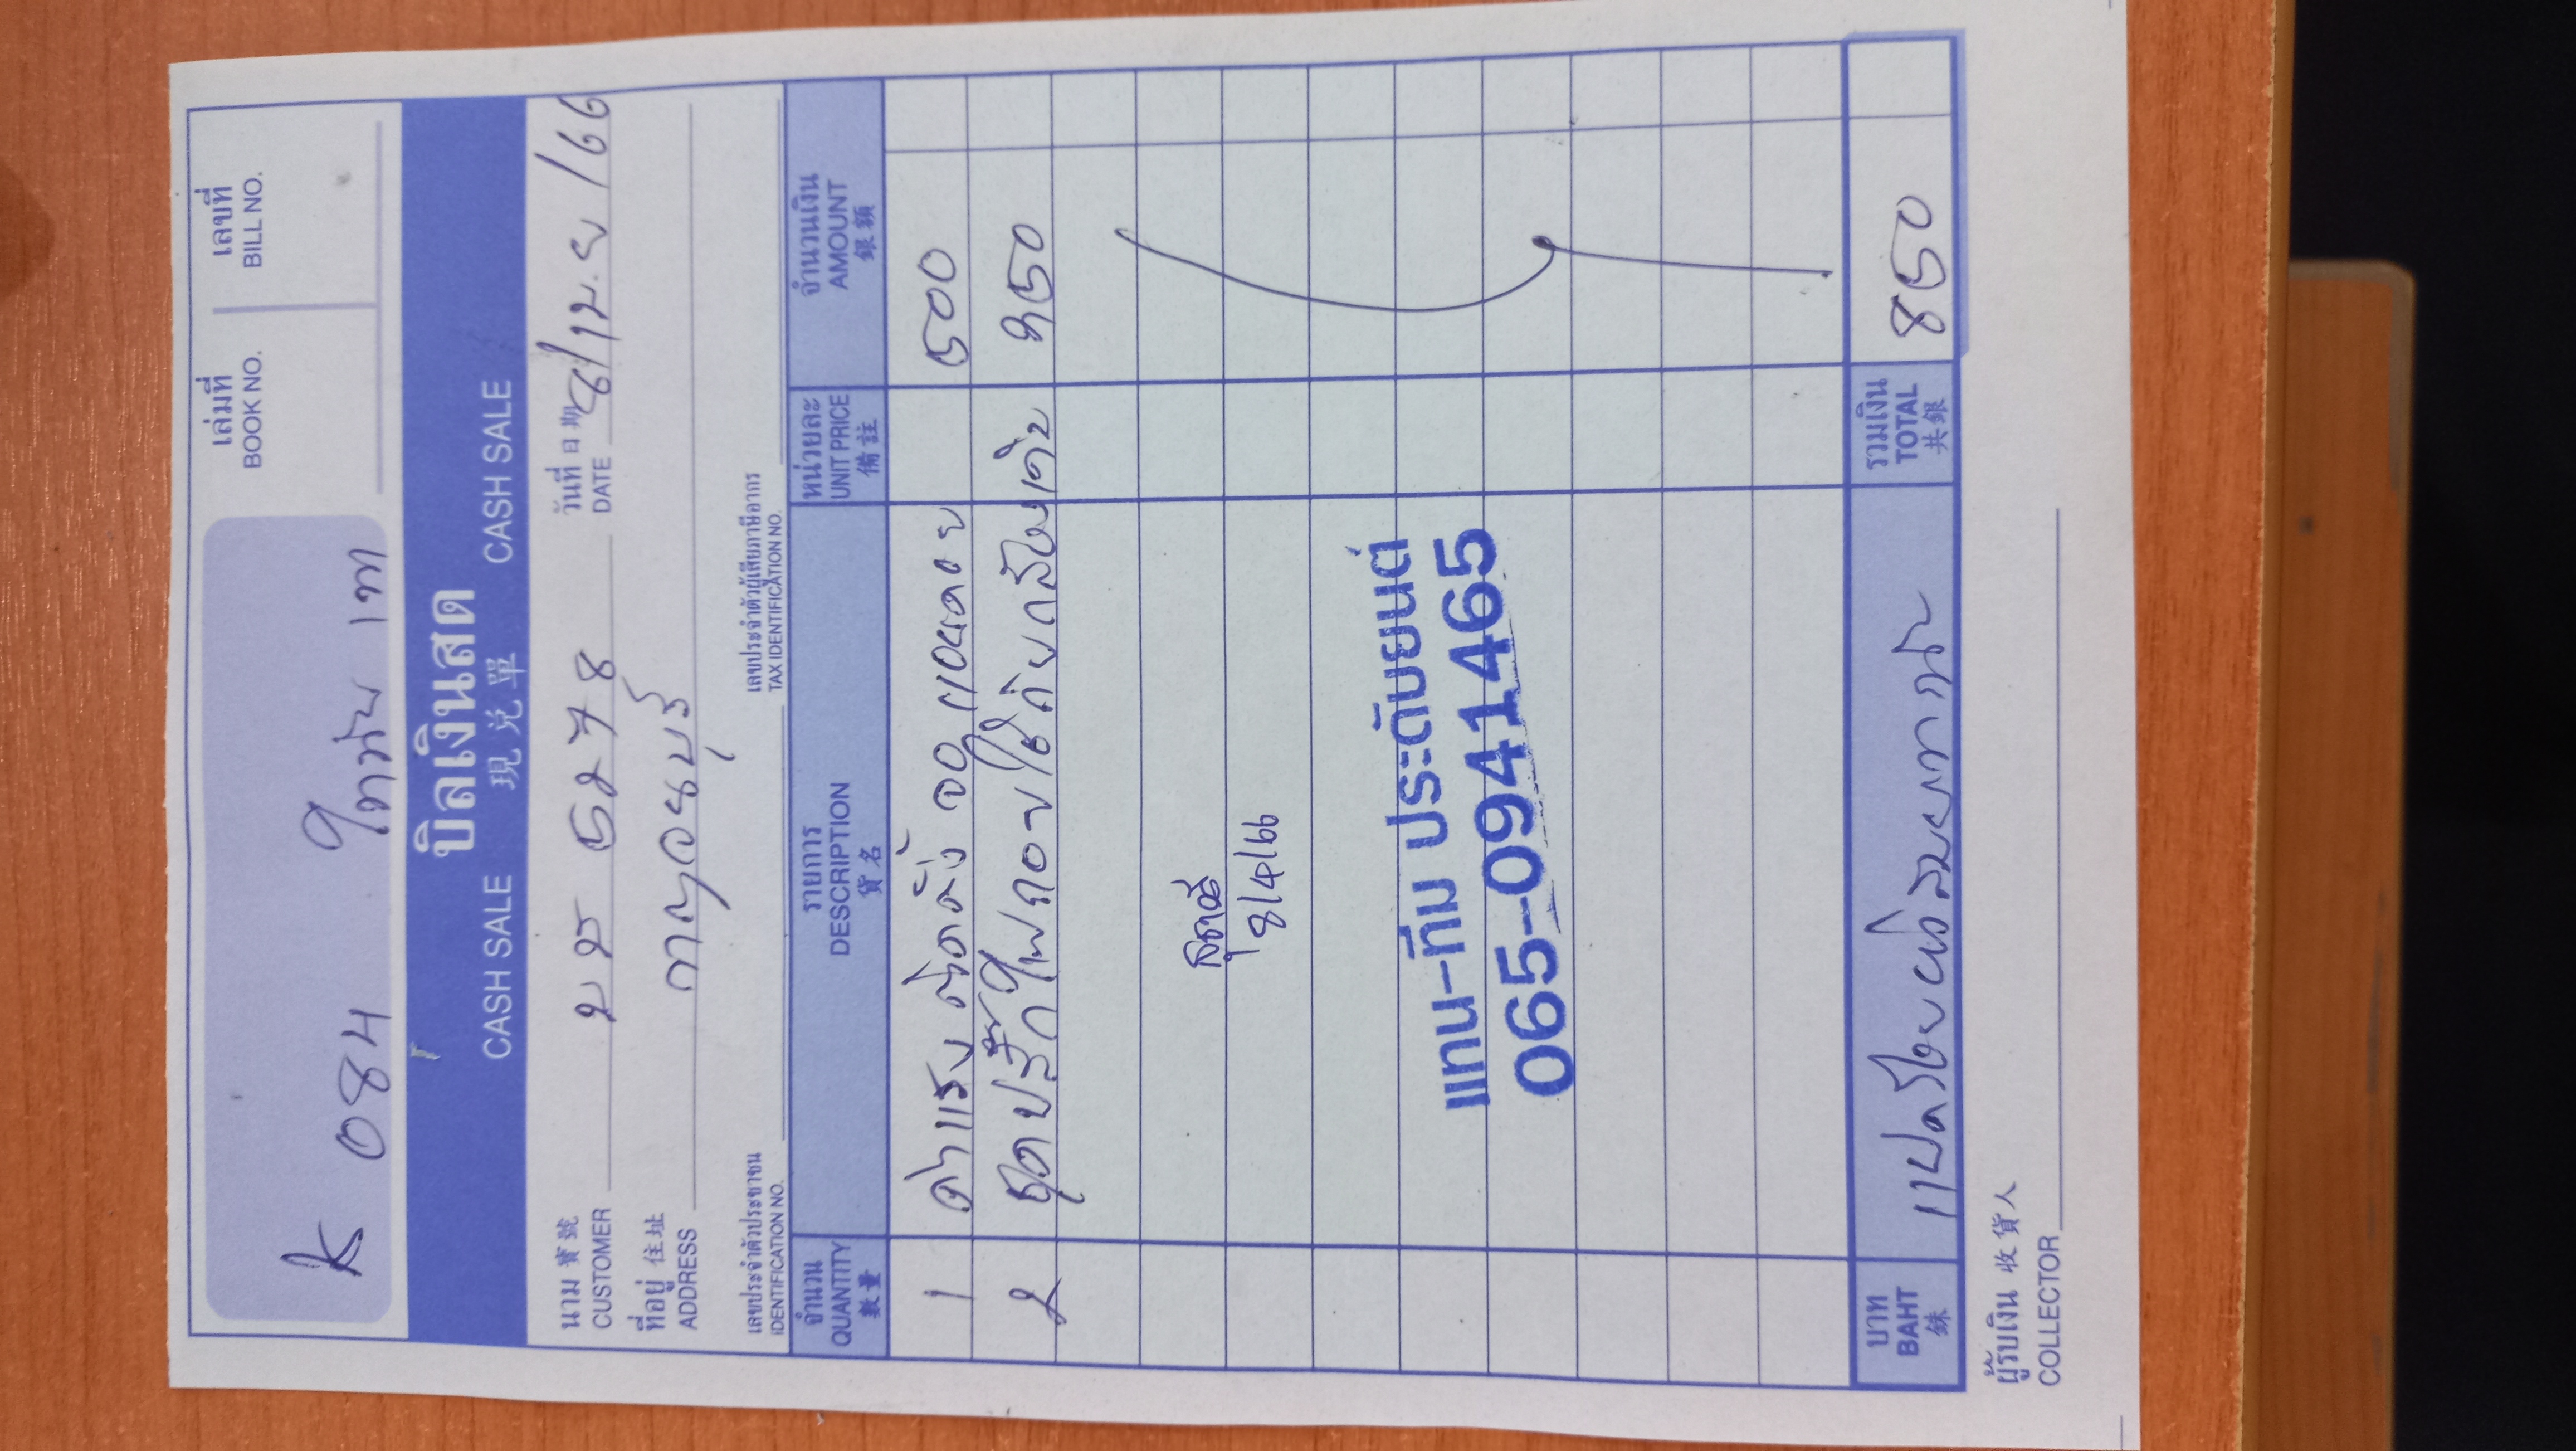 เล่มที่ เลขที่
BOOK NO. BILL NO.
K 084
บิลเงินสด
CASH SALE 現兌單 CASH SALE
นาม 寶號 วันที่ 日期
CUSTOMER บร 5278 DATE 8/เม.ย/66
ที่อยู่ 住址
ADDRESS กาญจนบุรี
เลขประจำตัวประชาชน เลขประจำตัวผู้เสียภาษีอากร
IDENTIFICATION NO. TAX IDENTIFICATION NO.
จำนวน รายการ หน่วยละ จำนวนเงิน
QUANTITY DESCRIPTION UNIT PRICE AMOUNT
數量 貨名 備註 銀額
1 ค่าแรง ติดตั้ง จอ 500
2 ชุดปลั๊กไฟ 350
8/4/66
แทน-ทีม ประดับยนต์
065-0941465
บาท รวมเงิน
BAHT แปดร้อยห้าสิบบาท TOTAL 850
銖 共銀
ผู้รับเงิน 收貨人
COLLECTOR